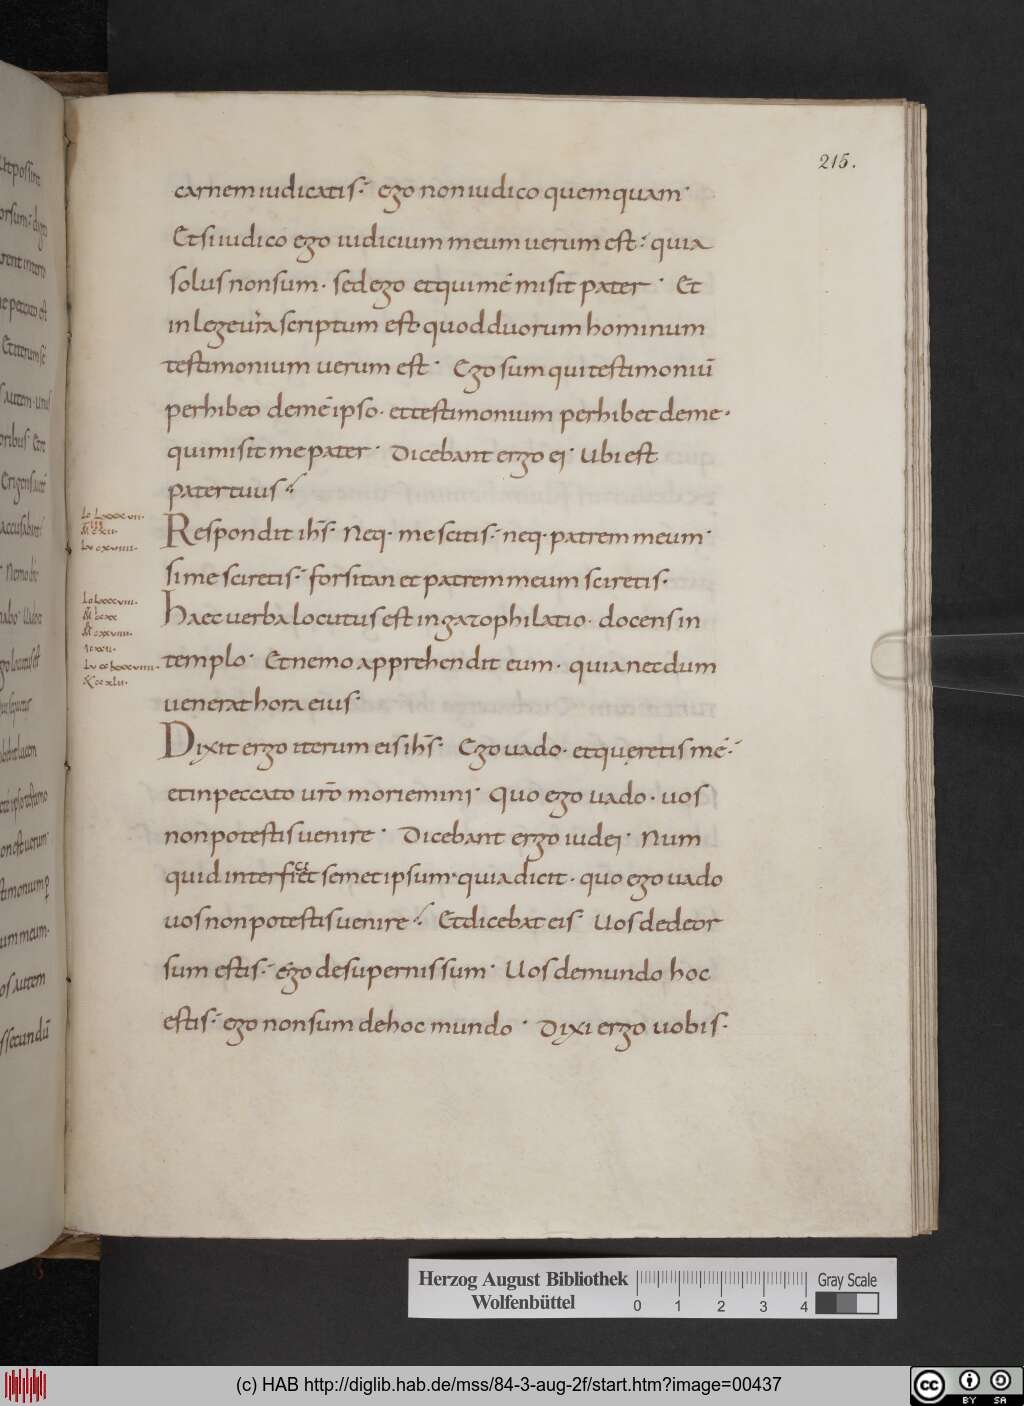 215.
carnem iudicatis· ego non iudico quemquam·
Et si iudico ego iudicium meum uerum est· quia
solus non sum· sed ego et qui mé misit pater· Et
in lege ur̃a scriptum est quod duorum hominum
testimonium uerum est· Ego sum qui testimoniū
perhibeo de mé ipso· et testimonium perhibet de me·
qui misit me pater· Dicebant ergo ei· Ubi est
pater tuus·
Respondit ih̅s· Neq· me scitis· neq· patrem meum·
si me sciretis· forsitan et patrem meum sciretis·
Haec uerba locutus est in gazophilatio· docens in
templo· Et nemo apprehendit eum· quia necdum
uenerat hora eius·
Dixit ergo iterum eis ih̅s· Ego uado· et quęretis mé·
et in peccato ur̃o moriemini· Quo ego uado· uos
non potestis uenire· Dicebant ergo iudei· Num
quid interficiet semet ipsum· quia dicit· quo ego uado
uos non potestis uenire· Et dicebat eis· Uos de deor
sum estis· égo de supernis sum· Uos de mundo hoc
estis· ego non sum de hoc mundo· Dixi ergo uobis·
Herzog August Bibliothek
Wolfenbüttel
0 1 2 3 4
Gray Scale
(c) HAB http://diglib.hab.de/mss/84-3-aug-2f/start.htm?image=00437
cc BY SA